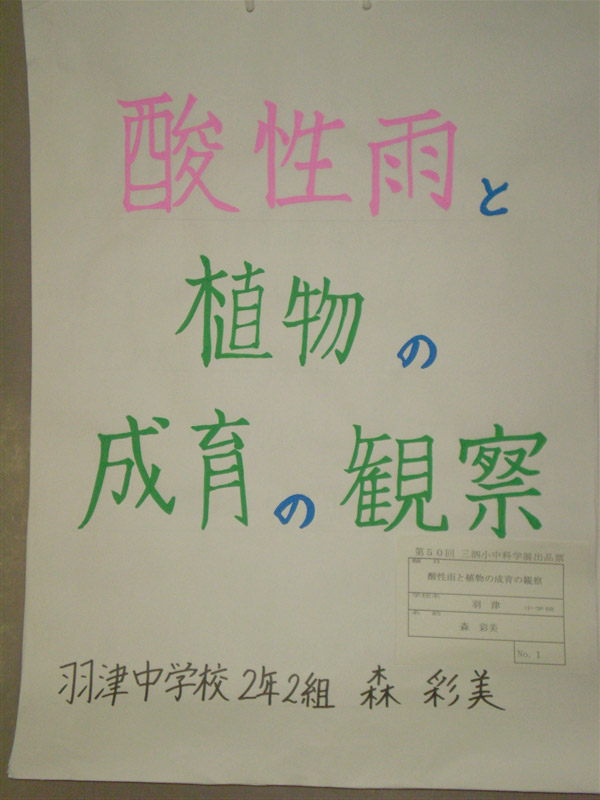 酸性雨と
植物の
成育の観察
第50回 三泗小中科学展出品票
題 目
酸性雨と植物の成育の観察
学校名
羽 津
小・中学校
名 前
森 彩美
No. 1
羽津中学校 2年2組 森 彩美